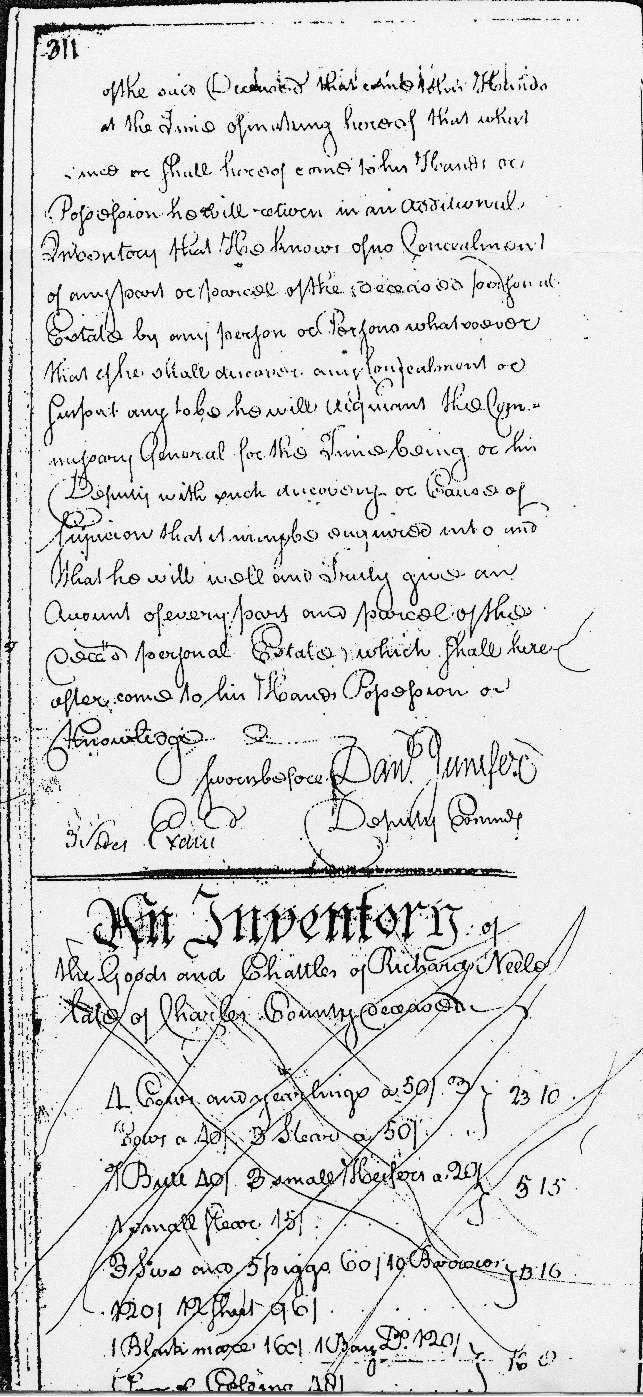 311
of the said Deceased that came to his Hands
at the Time of making hereof that what
since or shall hereof come to his Hands or
Possession he will return in an additional
Inventory that He knows of no Concealment
of any part or parcel of the deceaseds personal
Estate by any person or Persons whatsoever
that if he shall discover any Consealment or
Suspect any to be he will acquaint the Com-
missary General for the Time being or his
Deputy with such discovery or Cause of
Supicion that it may be enquired into and
that he will well and Truly give an
Account of every part and parcel of the
Decd personal Estate which shall here
after come to his Hands Possession or
Knowledge
sworn before Danl Jenifer
3 sides Exam Deputy Commy
An Inventory of
the Goods and Chattles of Richard Neele
late of Charles County deceased
4 Cows and yearlings a 50/ 3 } 23 10
Cows a 40/ 3 Stear a 50/
1 Bull 40/ 3 small Heifers a 20/ } 5 15
1 small stear 15/
3 Sows and 5 piggs 60/ 10 Barrows } 16
120/ 12 Shoat 96/
1 Black mare 160/ 1 Bay Do 120/ } 16 0